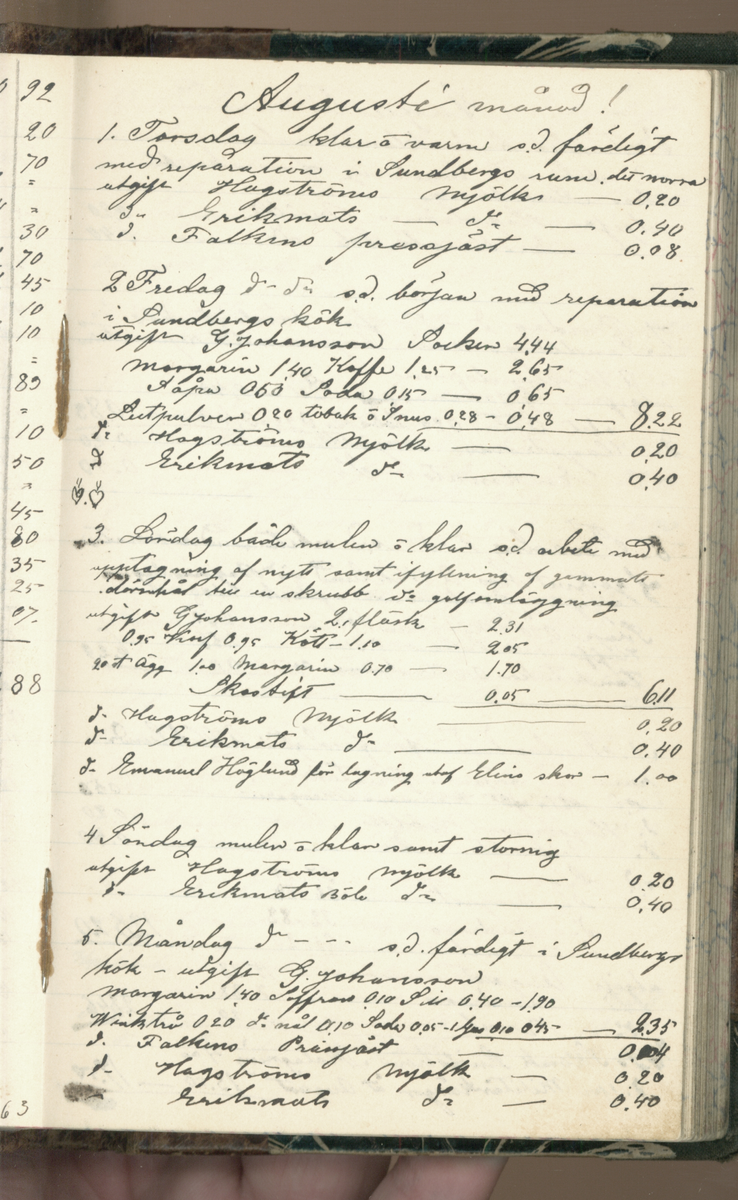 92
20
70
"
"
30
70
45
10
10
"
89
"
10
50
"
45
80
35
25
07.
88
63
Augusti månad!
1. Torsdag klar ō varm s.d. färdigt
med reparation i Sundbergs rum. det norra
utgift Hagströms Mjölk — 0,20
d:o Erikmats — d:o — 0.40
d. Falkens pressjäst — 0.08.
2 Fredag d:o d:o s.d. början med reparation
i Sundbergs kök
utgift G. Johansson Socker 4,44
margarin 1,40 Kaffe 1,25 — 2,65
Såpa 050 Soda 015 — 0,65
Lutpulver 020 tobak ō Snus 0,28 - 0,48 — 8.22
d:o Hagströms Mjölk — 0.20
d:o Erikmats d:o — 0.40
3. Lördag både mulen ō klar s.d. arbete med
upptagning af nytt samt ifyllning af gammalt
dörrhål till en skrubb d:o golfomläggning
utgift G Johansson 2, fläsk — 2.31
0,95 Korf 0,95 Kött - 1.10 2.05
20 st Ägg 1.00 Margarin 0.70 — 1.70
Skostift — 0.05 — 6.11
d:o Hagströms Mjölk — 0,20
d:o Erikmats d:o — 0.40
d:o Emanuel Höglund för lagning utaf Elins skor — 1.00
4 Söndag mulen ō klar samt stormig
utgift Hagströms Mjölk — 0.20
d:o Erikmats Böle d:o — 0.40
5. Måndag d:o - - - s.d. färdigt i Sundbergs
kök - utgift G. Johansson
margarin 1,40 Saffran 010 Sill 0,40 - 1,90
020 d:o nål 0,10 Soda 0,05 - 0,10 0,45 — 2.35
d. Falkens Pressjäst 0.04
d:o Hagströms Mjölk — 0.20
Erikmats d:o — 0.40